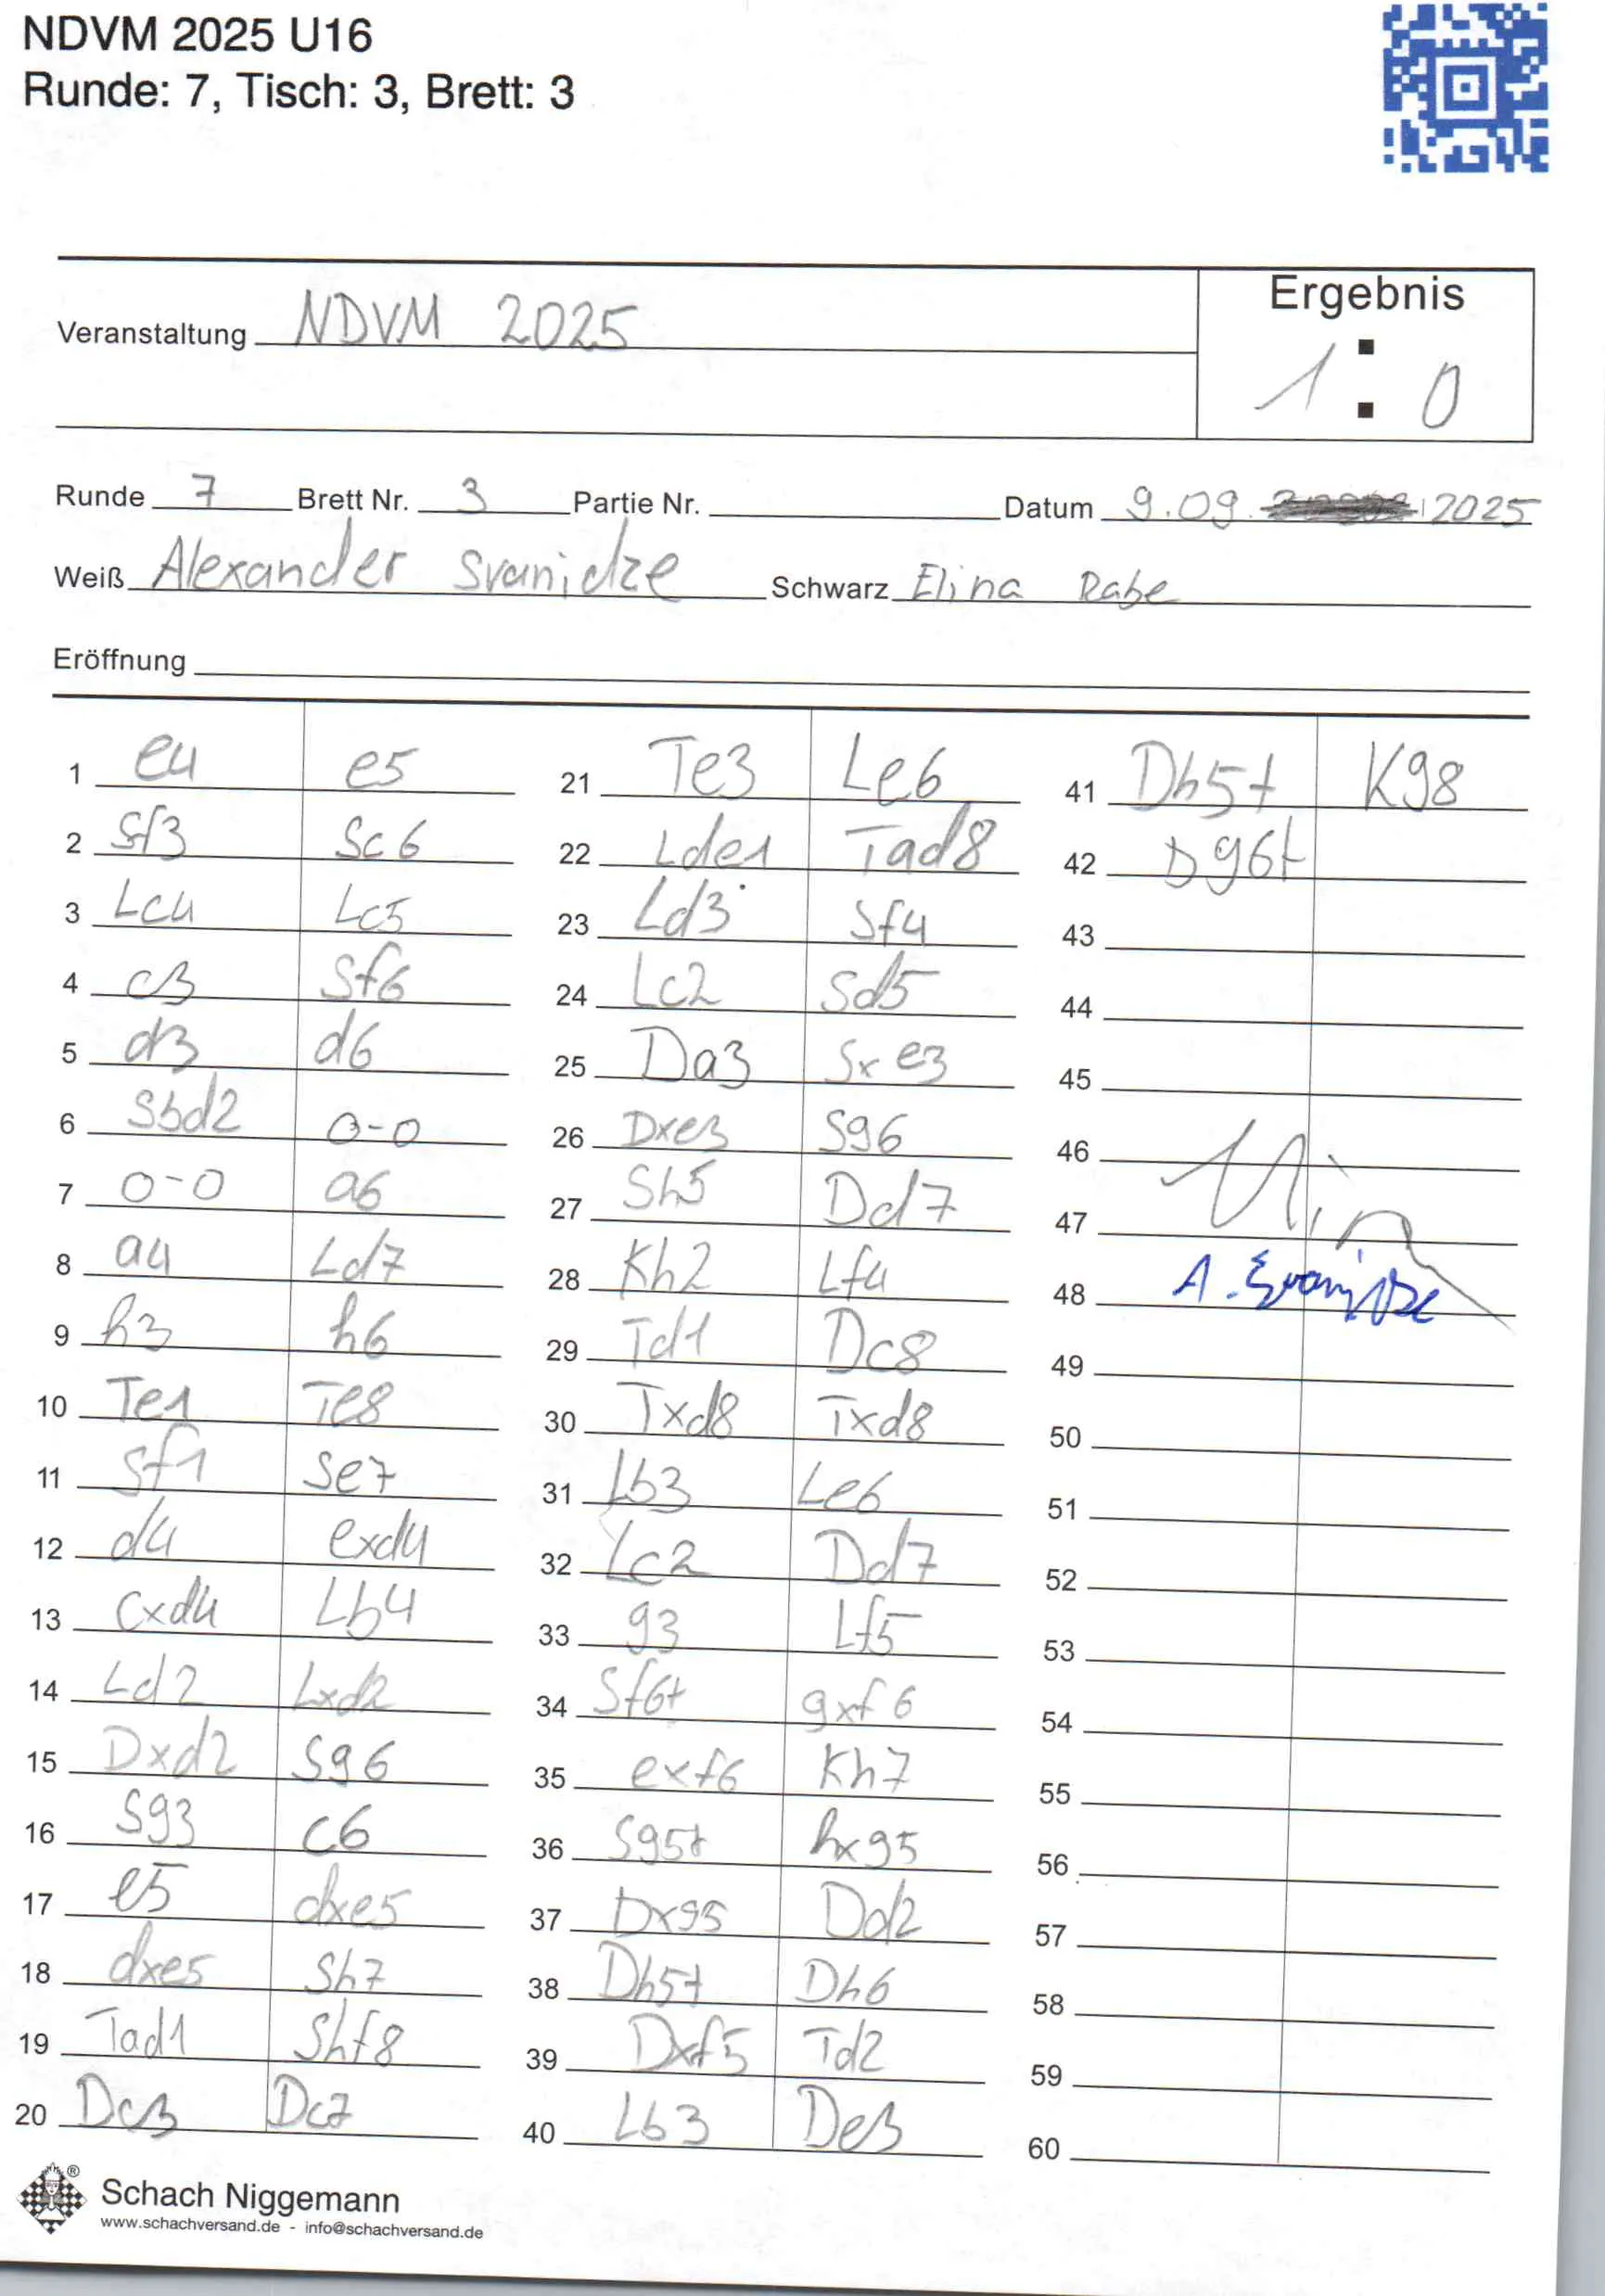 NDVM 2025 U16
Runde: 7, Tisch: 3, Brett: 3
Ergebnis
Veranstaltung NDVM 2025
1 : 0
Runde 7 Brett Nr. 3 Partie Nr. Datum 9.09. 2025
Weiß Alexander Svanidze Schwarz Elina Rabe
Eröffnung
1 e4 e5
2 Sf3 Sc6
3 Lc4 Lc5
4 c3 Sf6
5 d3 d6
6 Sbd2 0-0
7 0-0 a6
8 a4 Ld7
9 h3 h6
10 Te1 Te8
11 Sf1 Se7
12 d4 exd4
13 cxd4 Lb4
14 Ld2 Lxd2
15 Dxd2 Sg6
16 Sg3 c6
17 e5 dxe5
18 dxe5 Sh7
19 Tad1 Shf8
20 Dc3 Dc7
21 Te3 Le6
22 Lde1 Tad8
23 Ld3 Sf4
24 Lc2 Sd5
25 Da3 Sxe3
26 Dxe3 Sg6
27 Sh5 Dd7
28 Kh2 Lf4
29 Td1 Dc8
30 Txd8 Txd8
31 Lb3 Le6
32 Lc2 Dd7
33 g3 Lf5
34 Sf6+ gxf6
35 exf6 Kh7
36 Sg5+ hxg5
37 Dxg5 Dd2
38 Dh5+ Dh6
39 Dxf5 Td2
40 Lb3 De3
41 Dh5+ Kg8
42 Dg6+
43
44
45
46
47
48 A. Svanidze
49
50
51
52
53
54
55
56
57
58
59
60
Schach Niggemann
www.schachversand.de - info@schachversand.de